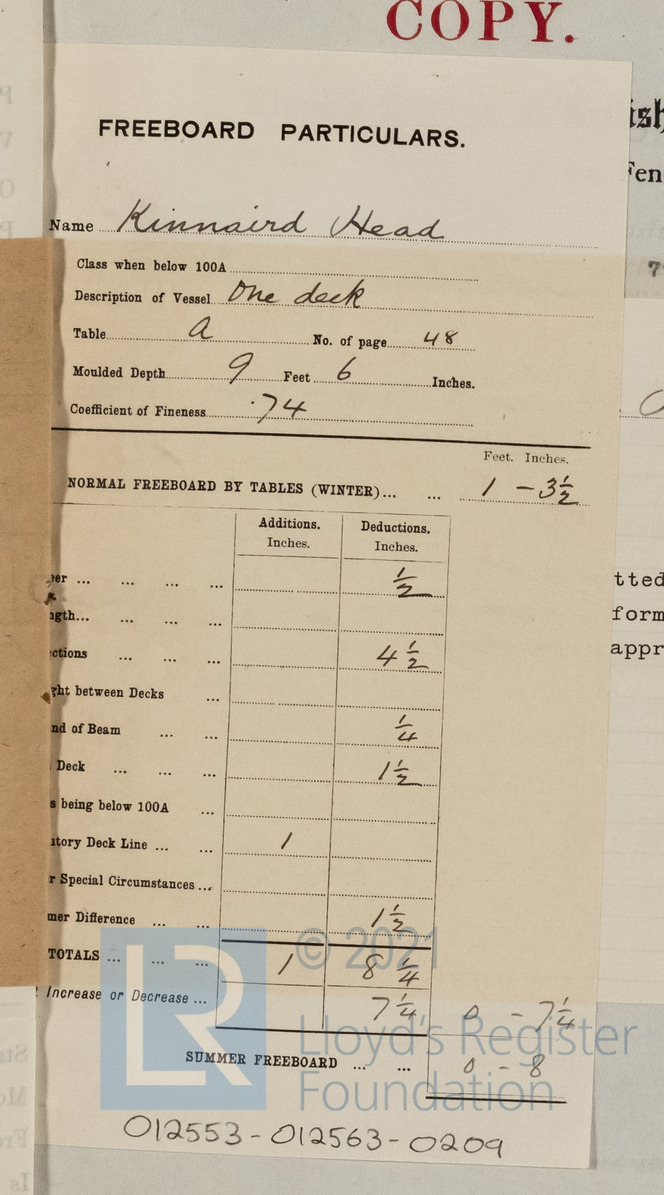 COPY.
FREEBOARD PARTICULARS.
Name Kinnaird Head
Class when below 100A
Description of Vessel One deck
Table a No. of page 48
Moulded Depth 9 Feet 6 Inches.
Coefficient of Fineness .74
Feet. Inches.
NORMAL FREEBOARD BY TABLES (WINTER)... ... 1 - 3½
Additions. Deductions.
Inches. Inches.
er ... ... ... ... ½
ngth... ... ... ...
ctions ... ... ... 4½
ght between Decks ...
nd of Beam ... ... ¼
Deck ... ... ... 1½
s being below 100A ...
tory Deck Line ... ... 1
r Special Circumstances ...
mer Difference ... ... 1½
TOTALS ... ... ... 1 8¼
Increase or Decrease ... 7¼ 0 - 7¼
SUMMER FREEBOARD ... ... 0 - 8
012553-012563-0209
ish
Fen
7
tted
form
appr
© 2021
LR
Lloyd's Register
Foundation